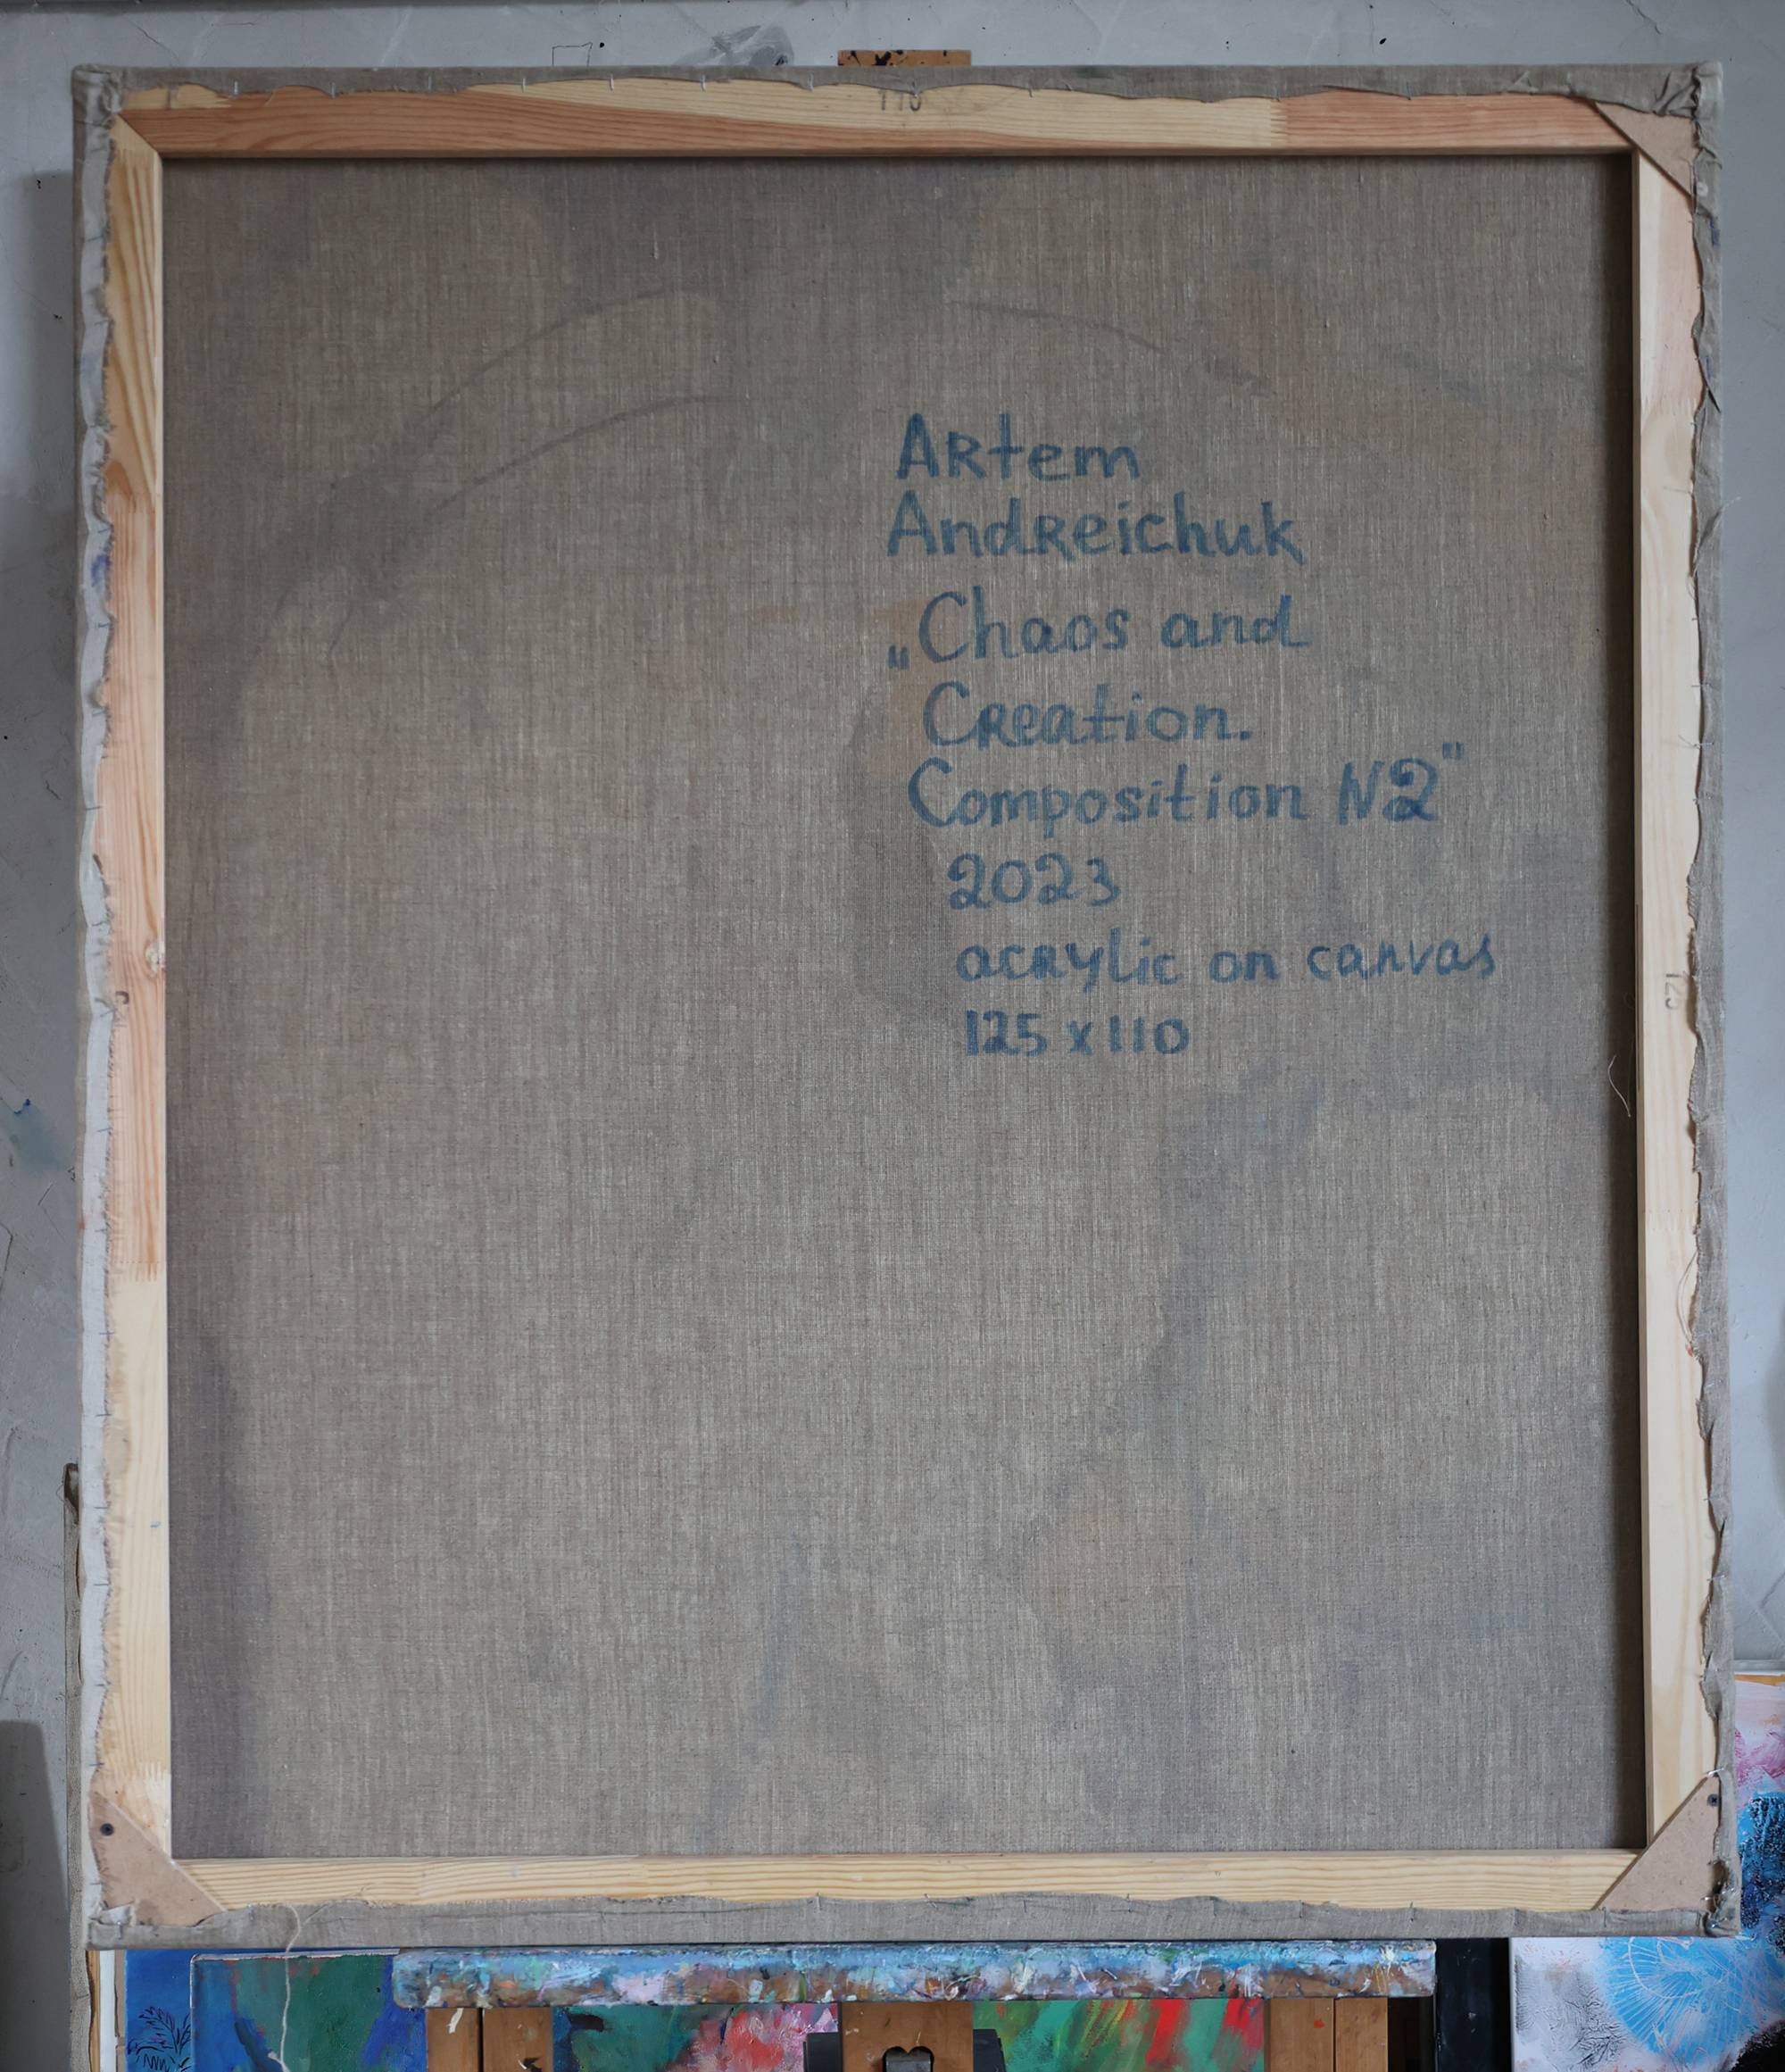 110
Artem
Andreichuk
„Chaos and
Creation.
Composition N2"
2023
acrylic on canvas
125 x 110
125